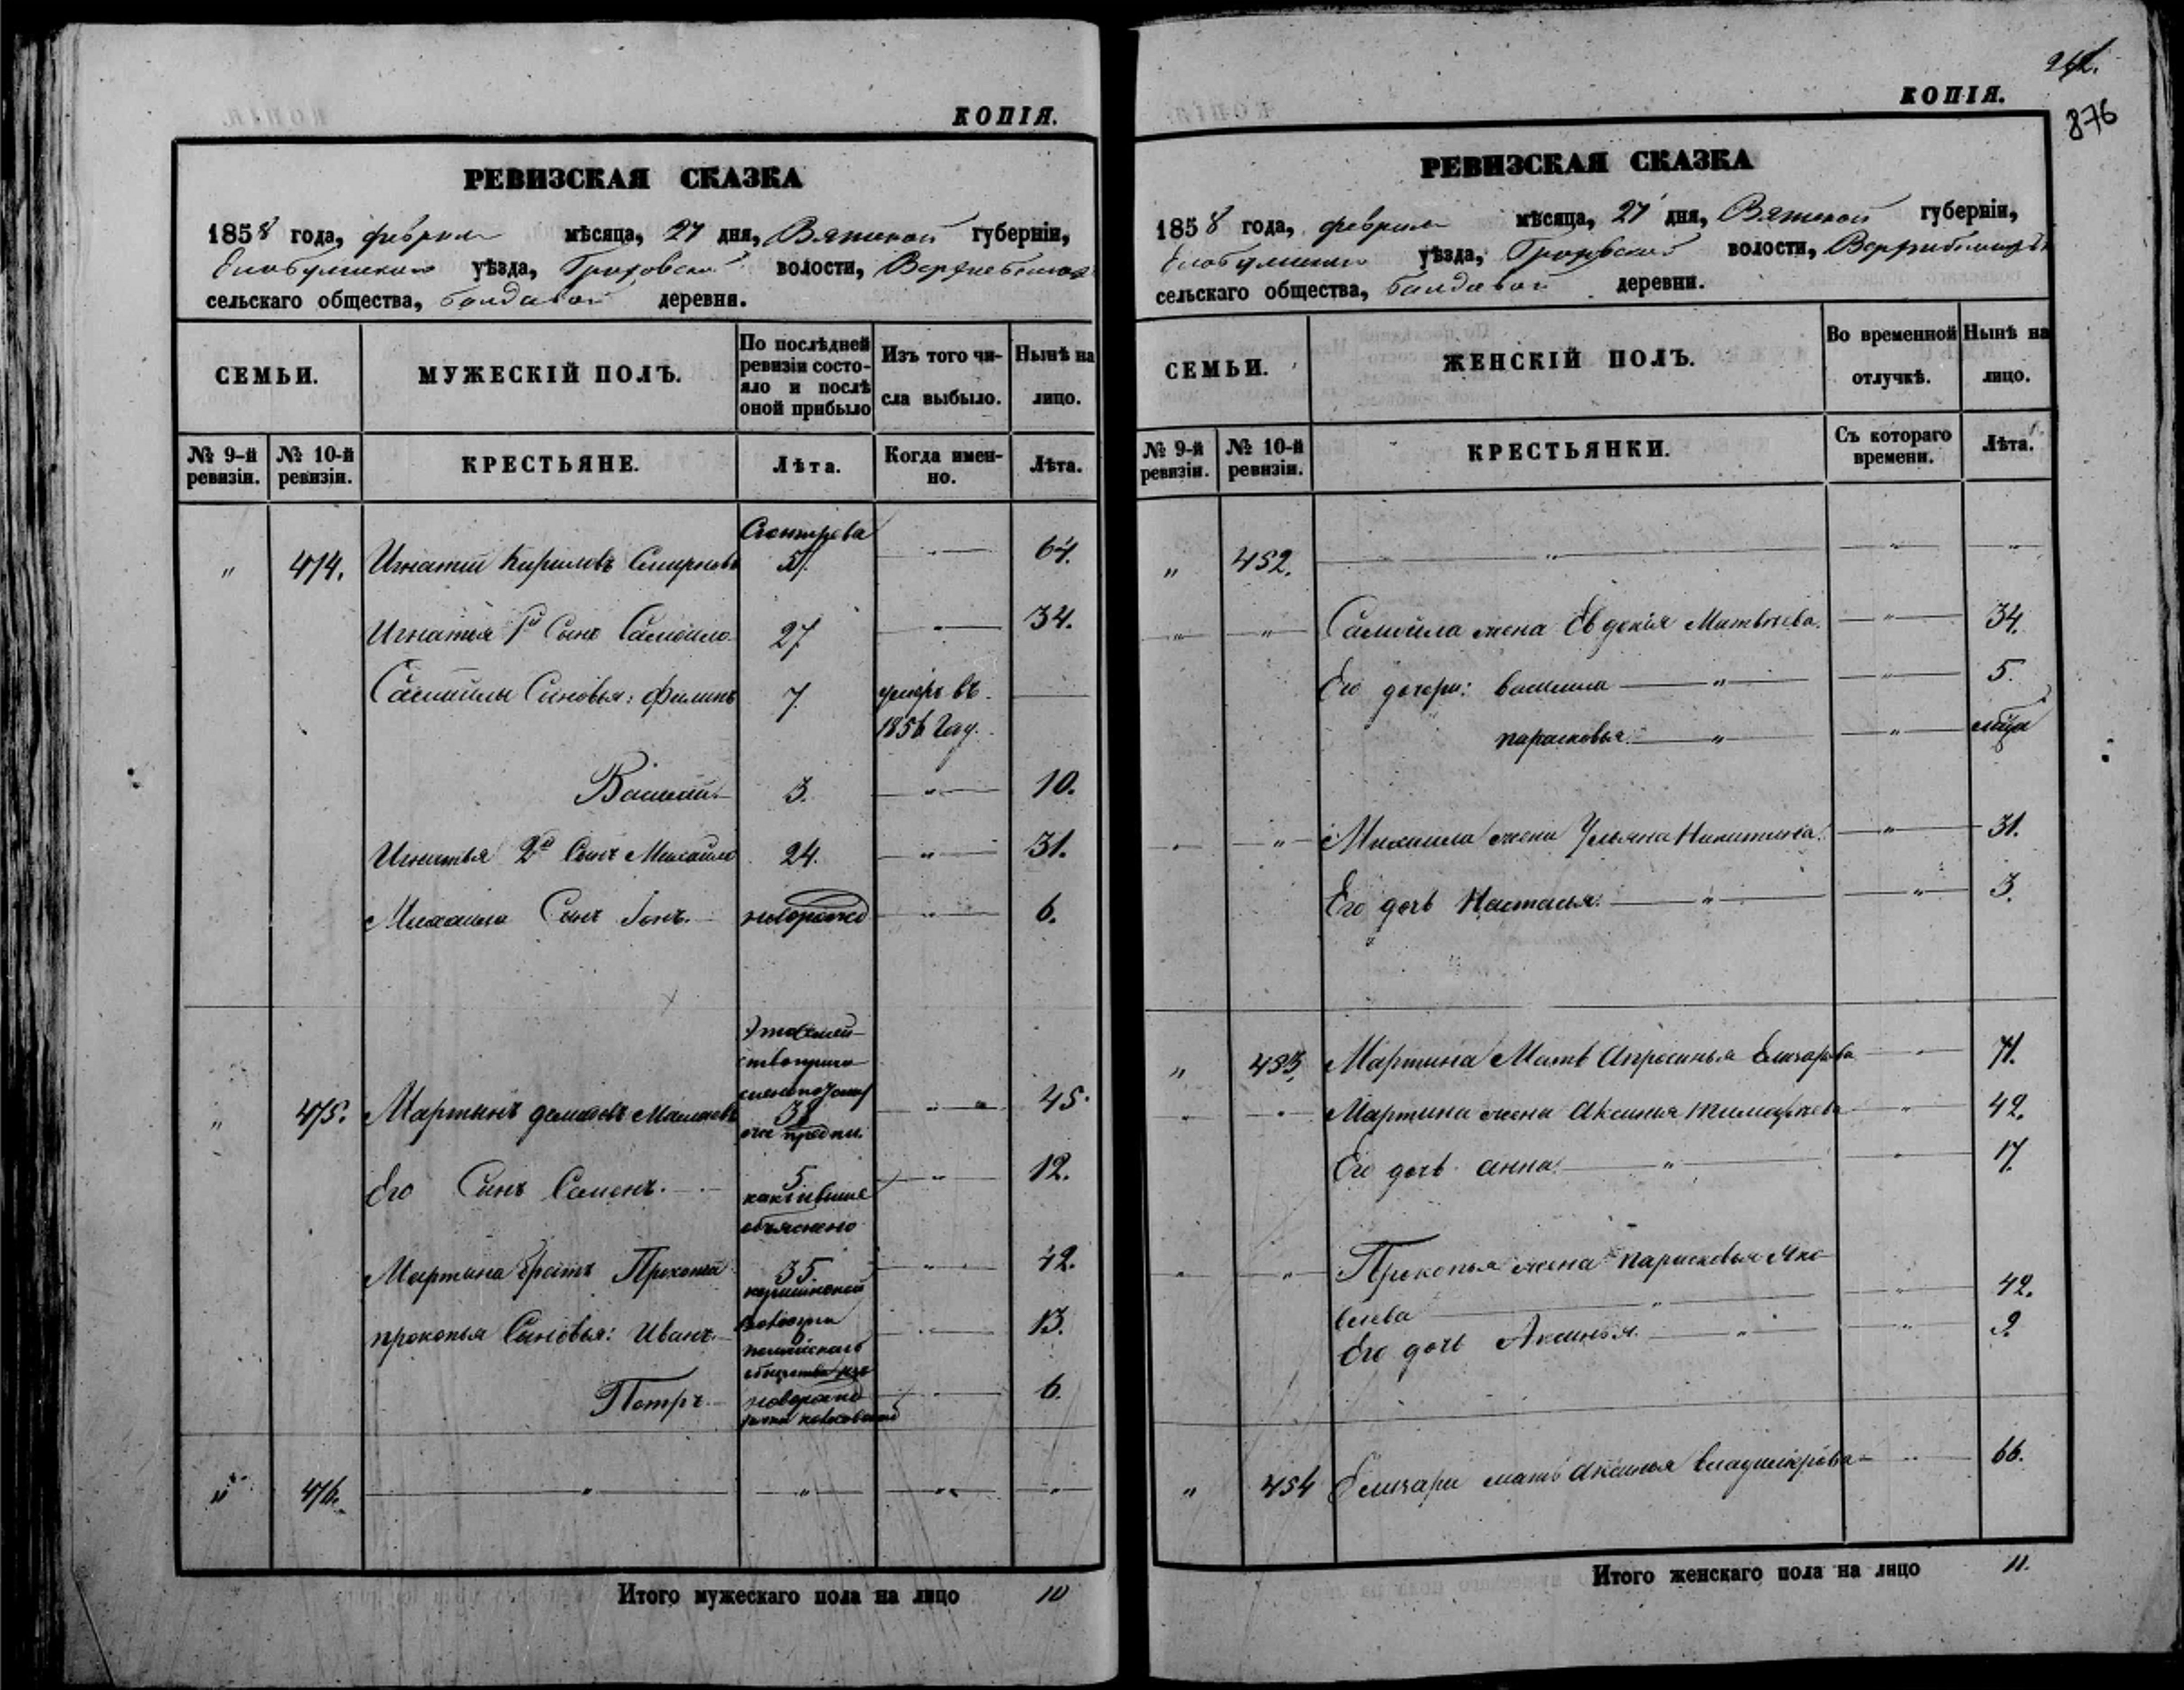 КОПІЯ.
РЕВИЗСКАЯ СКАЗКА
1858 года, февраля мѣсяца, 27 дня, Вятской губерніи,
Елабужскаго уѣзда, волости,
сельскаго общества, деревни.
СЕМЬИ.
МУЖЕСКІЙ ПОЛЪ.
По послѣдней
ревизіи состо-
яло и послѣ
оной прибыло
Изъ того чи-
сла выбыло.
Нынѣ на
лицо.
№ 9-й
ревизіи.
№ 10-й
ревизіи.
КРЕСТЬЯНЕ.
Лѣта.
Когда имен-
но.
Лѣта.
" 474. Игнатій Кириловъ Смирновъ 64.
Игнатья 1й Сынъ Самойло 27 34.
Самойлы Сыновья: Филипъ 7 умеръ въ
1856 году.
Василій 3. 10.
Игнатья 2й Сынъ Михайло 24. 31.
Михаила Сынъ Іонъ. новорожд 6.
Это семей-
ство причи
" 475. Мартынъ 38 45.
Его Сынъ Семенъ. 5 12.
какъ выше
объяснено
Мартина братъ Прокопій 35. 42.
прокопья Сыновья: Иванъ. волости 13.
общества
Петръ. новорожд 6.
" 476. " " " "
Итого мужескаго пола на лицо 10
КОПІЯ.
876
РЕВИЗСКАЯ СКАЗКА
1858 года, февраля мѣсяца, 27 дня, Вятской губерніи,
Елабужскаго уѣзда, волости,
сельскаго общества, деревни.
СЕМЬИ.
ЖЕНСКІЙ ПОЛЪ.
Во временной
отлучкѣ.
Нынѣ на
лицо.
№ 9-й
ревизіи.
№ 10-й
ревизіи.
КРЕСТЬЯНКИ.
Съ котораго
времени.
Лѣта.
" 452. " " "
" " Самойла жена Евдокія Матвѣева. " 34.
Его дочери: " " 5.
парасковья " "
" " Михаила жена Ульяна Никитина. " 31.
Его дочь Настасья. " " 3.
" 453. Мартина Мать Апросинья Елизарова 71.
" " Мартина жена Аксинья 42.
Его дочь анна. " " 17.
" " Прокопья жена парасковья Яко-
влева " " 42.
Его дочь Аксинья. " " 9.
" 454 мать Аксинья Владимирова 66.
Итого женскаго пола на лицо 11.